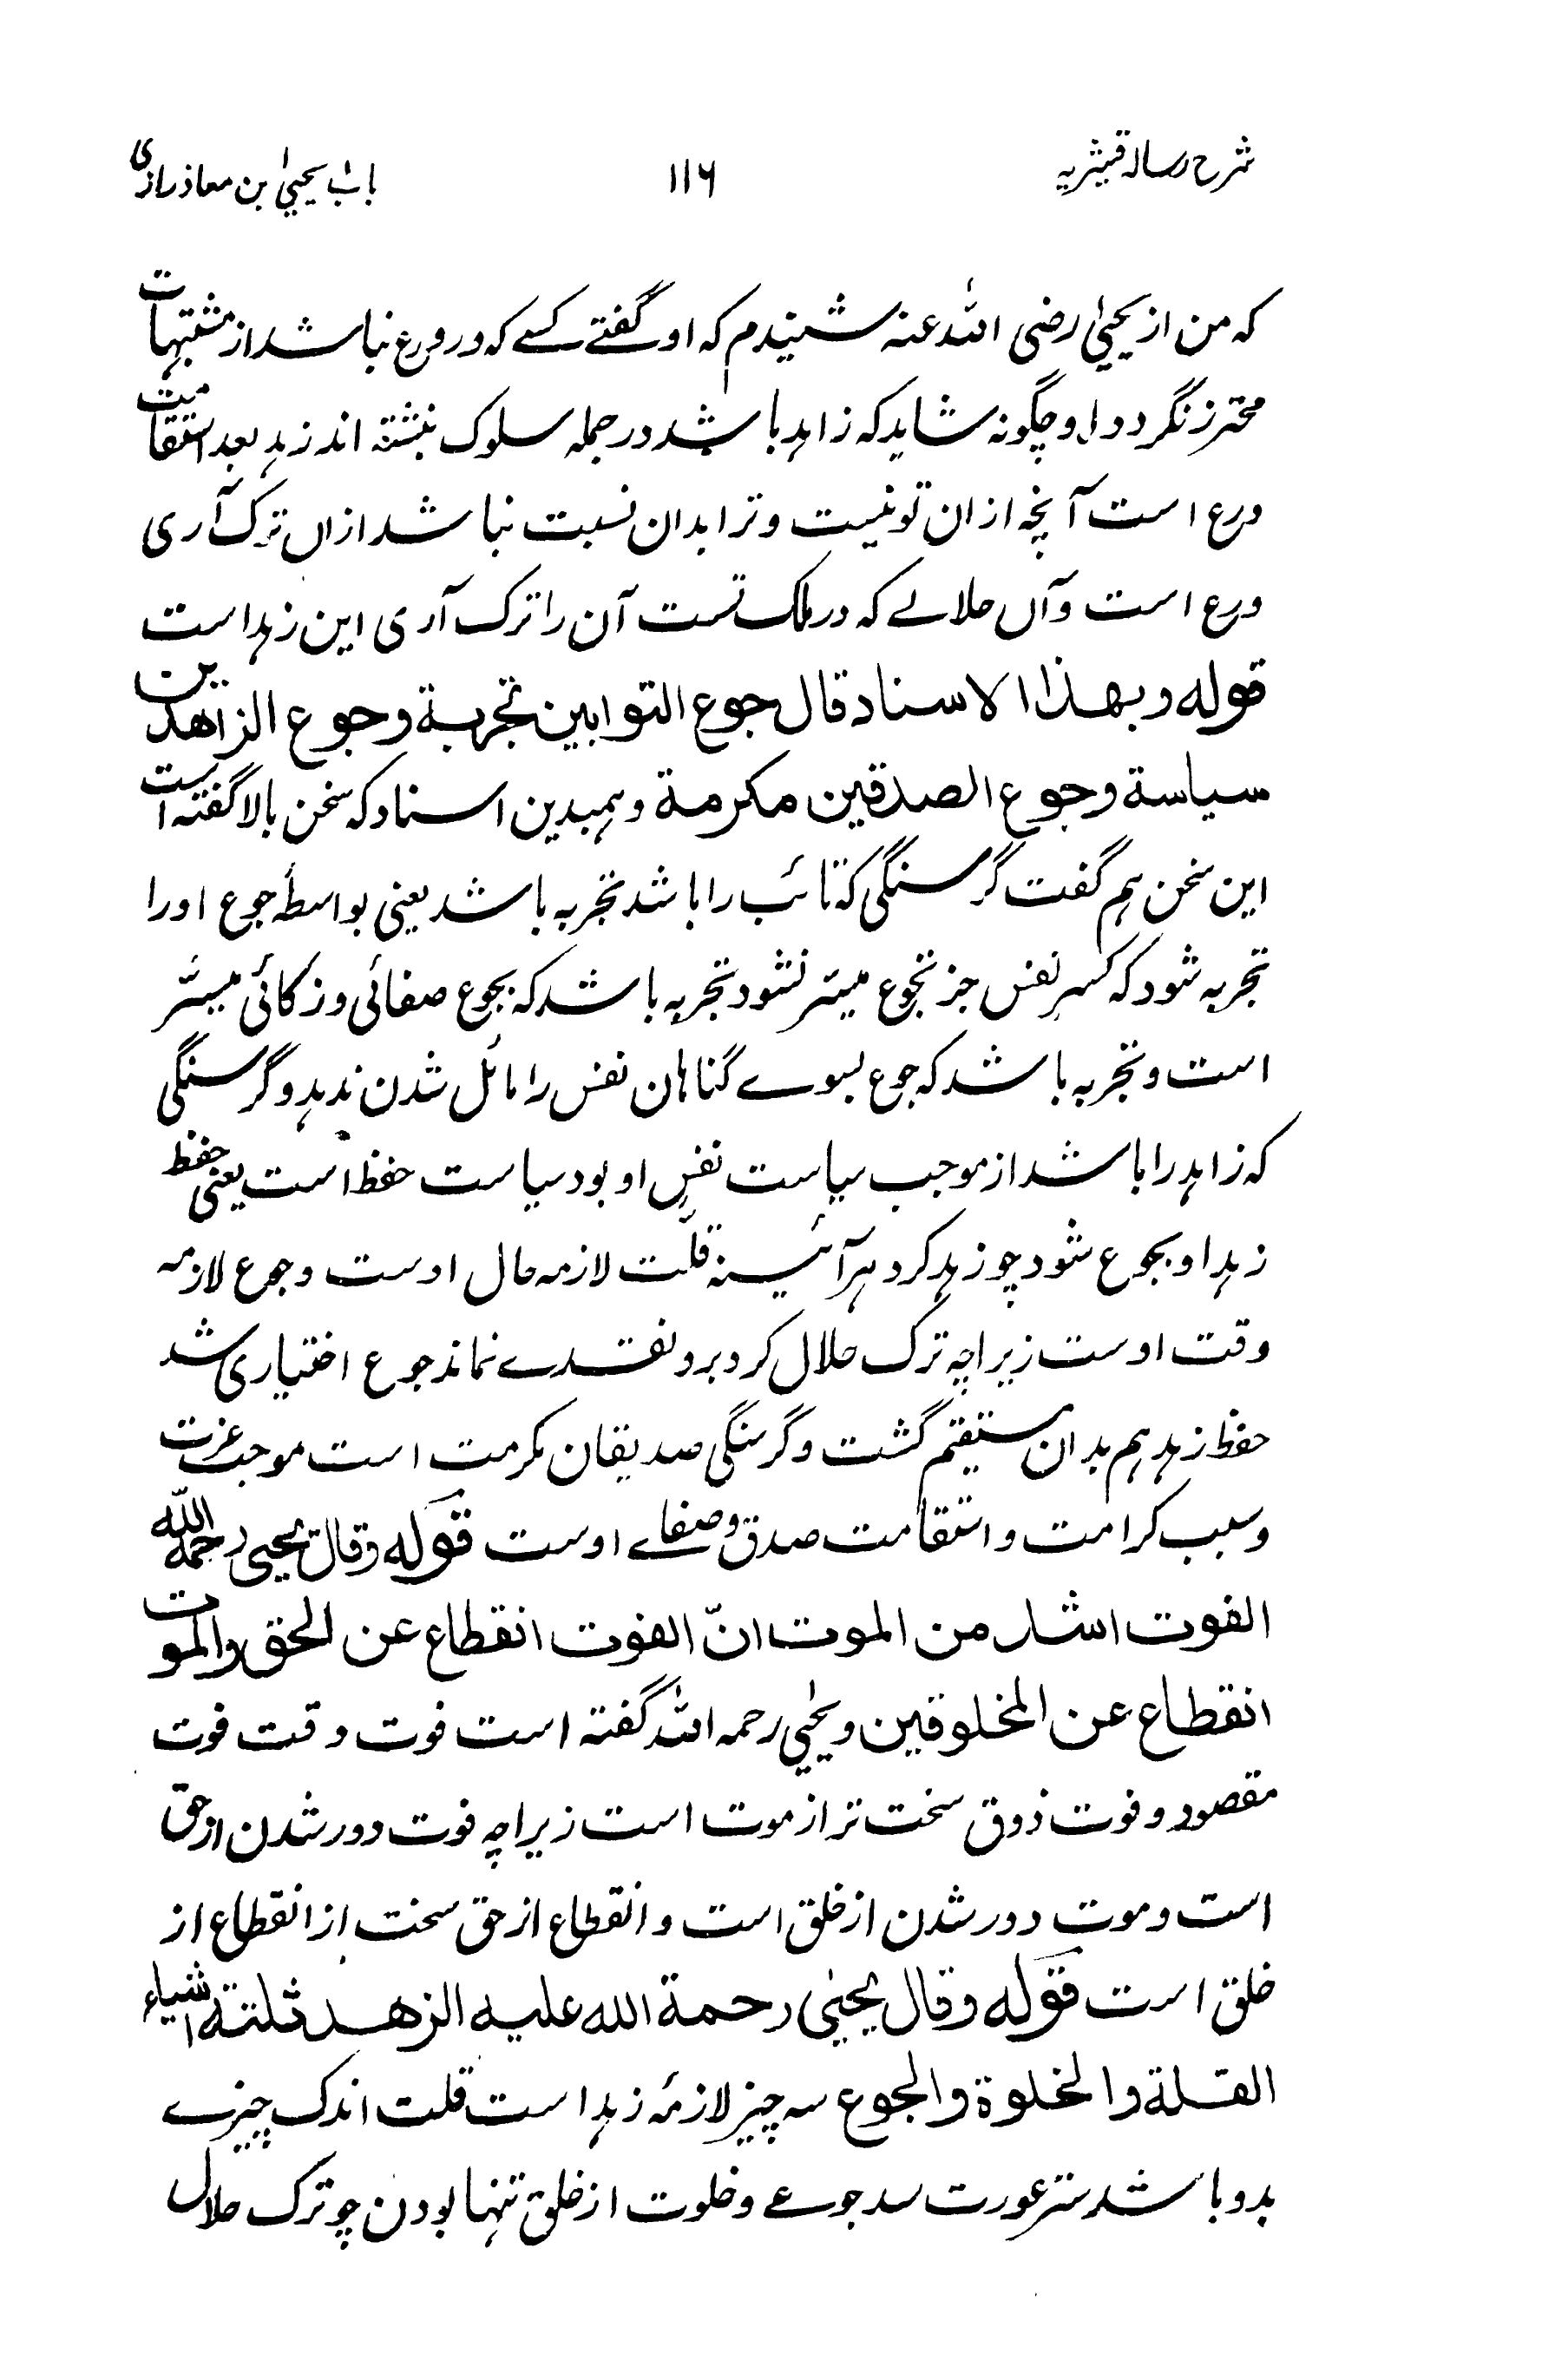 شرح رساله قشیریه ۱۱۶ باب یحییٰ بن معاذ رازی
که من از یحییٰ رضی الله عنه شنیدم که او گفتے کسے که در ورع نباشد از مشتبهات
محترز نگردد او چگونه شاید که زاهد باشد در جمله سلوک نبشته اند زهد بعد استقامت
ورع است آنچه از ان تو نیست و ترا بدان نسبت نباشد ازاں ترک آری
ورع است وآں حلالے که در ملک تست آن را ترک آری این زهد است
قوله وبهذا الاسناد قال جوع التوابین تجربة وجوع الزاهدین
سیاسة وجوع الصدقین مکرمة وهمبدین اسناد که سخن بالا گفته است
این سخن هم گفت گرسنگی که تائب را باشد تجربه باشد یعنی بواسطهٔ جوع او را
تجربه شود که کسر نفس جز بجوع میسّر نشود تجربه باشد که بجوع صفائی وزکائی میسّر
است و تجربه باشد که جوع بسوے گناهان نفس را مائل شدن ندهد و گرسنگی
که زاهد را باشد از موجب سیاست نفسِ او بود سیاست حفظ است یعنی حفظ
زهد او بجوع شود چو زهد کرد هرآئینه قلّت لازمه حال اوست وجوع لازمه
وقت اوست زیراچه ترک حلال کرد برو نقدے نماند جوع اختیاری شد
حفظ زهد هم بدان مستقیم گشت و گرسنگی صدیقان مکرمت است موجب عزت
وسبب کرامت و استقامت صدق وصفاے اوست قوله وقال یحیی رحمه الله
الفوت اشد من الموت انّ الفوت انقطاع عن الحق والموت
انقطاع عن المخلوقین ویحیٰی رحمه الله گفته است فوت وقت فوت
مقصود و فوت ذوق سخت تر از موت است زیراچه فوت دور شدن از حق
است و موت دور شدن از خلق است و انقطاع از حق سخت از انقطاع از
خلق است قوله وقال یحیٰی رحمة الله علیه الزهد ثلثة اشیاء
القلة والخلوة والجوع سه چیز لازمۀ زهد است قلت اندک چیزے
بدو باشد ستر عورت سد جوعے وخلوت از خلق تنها بودن چو ترک حلال